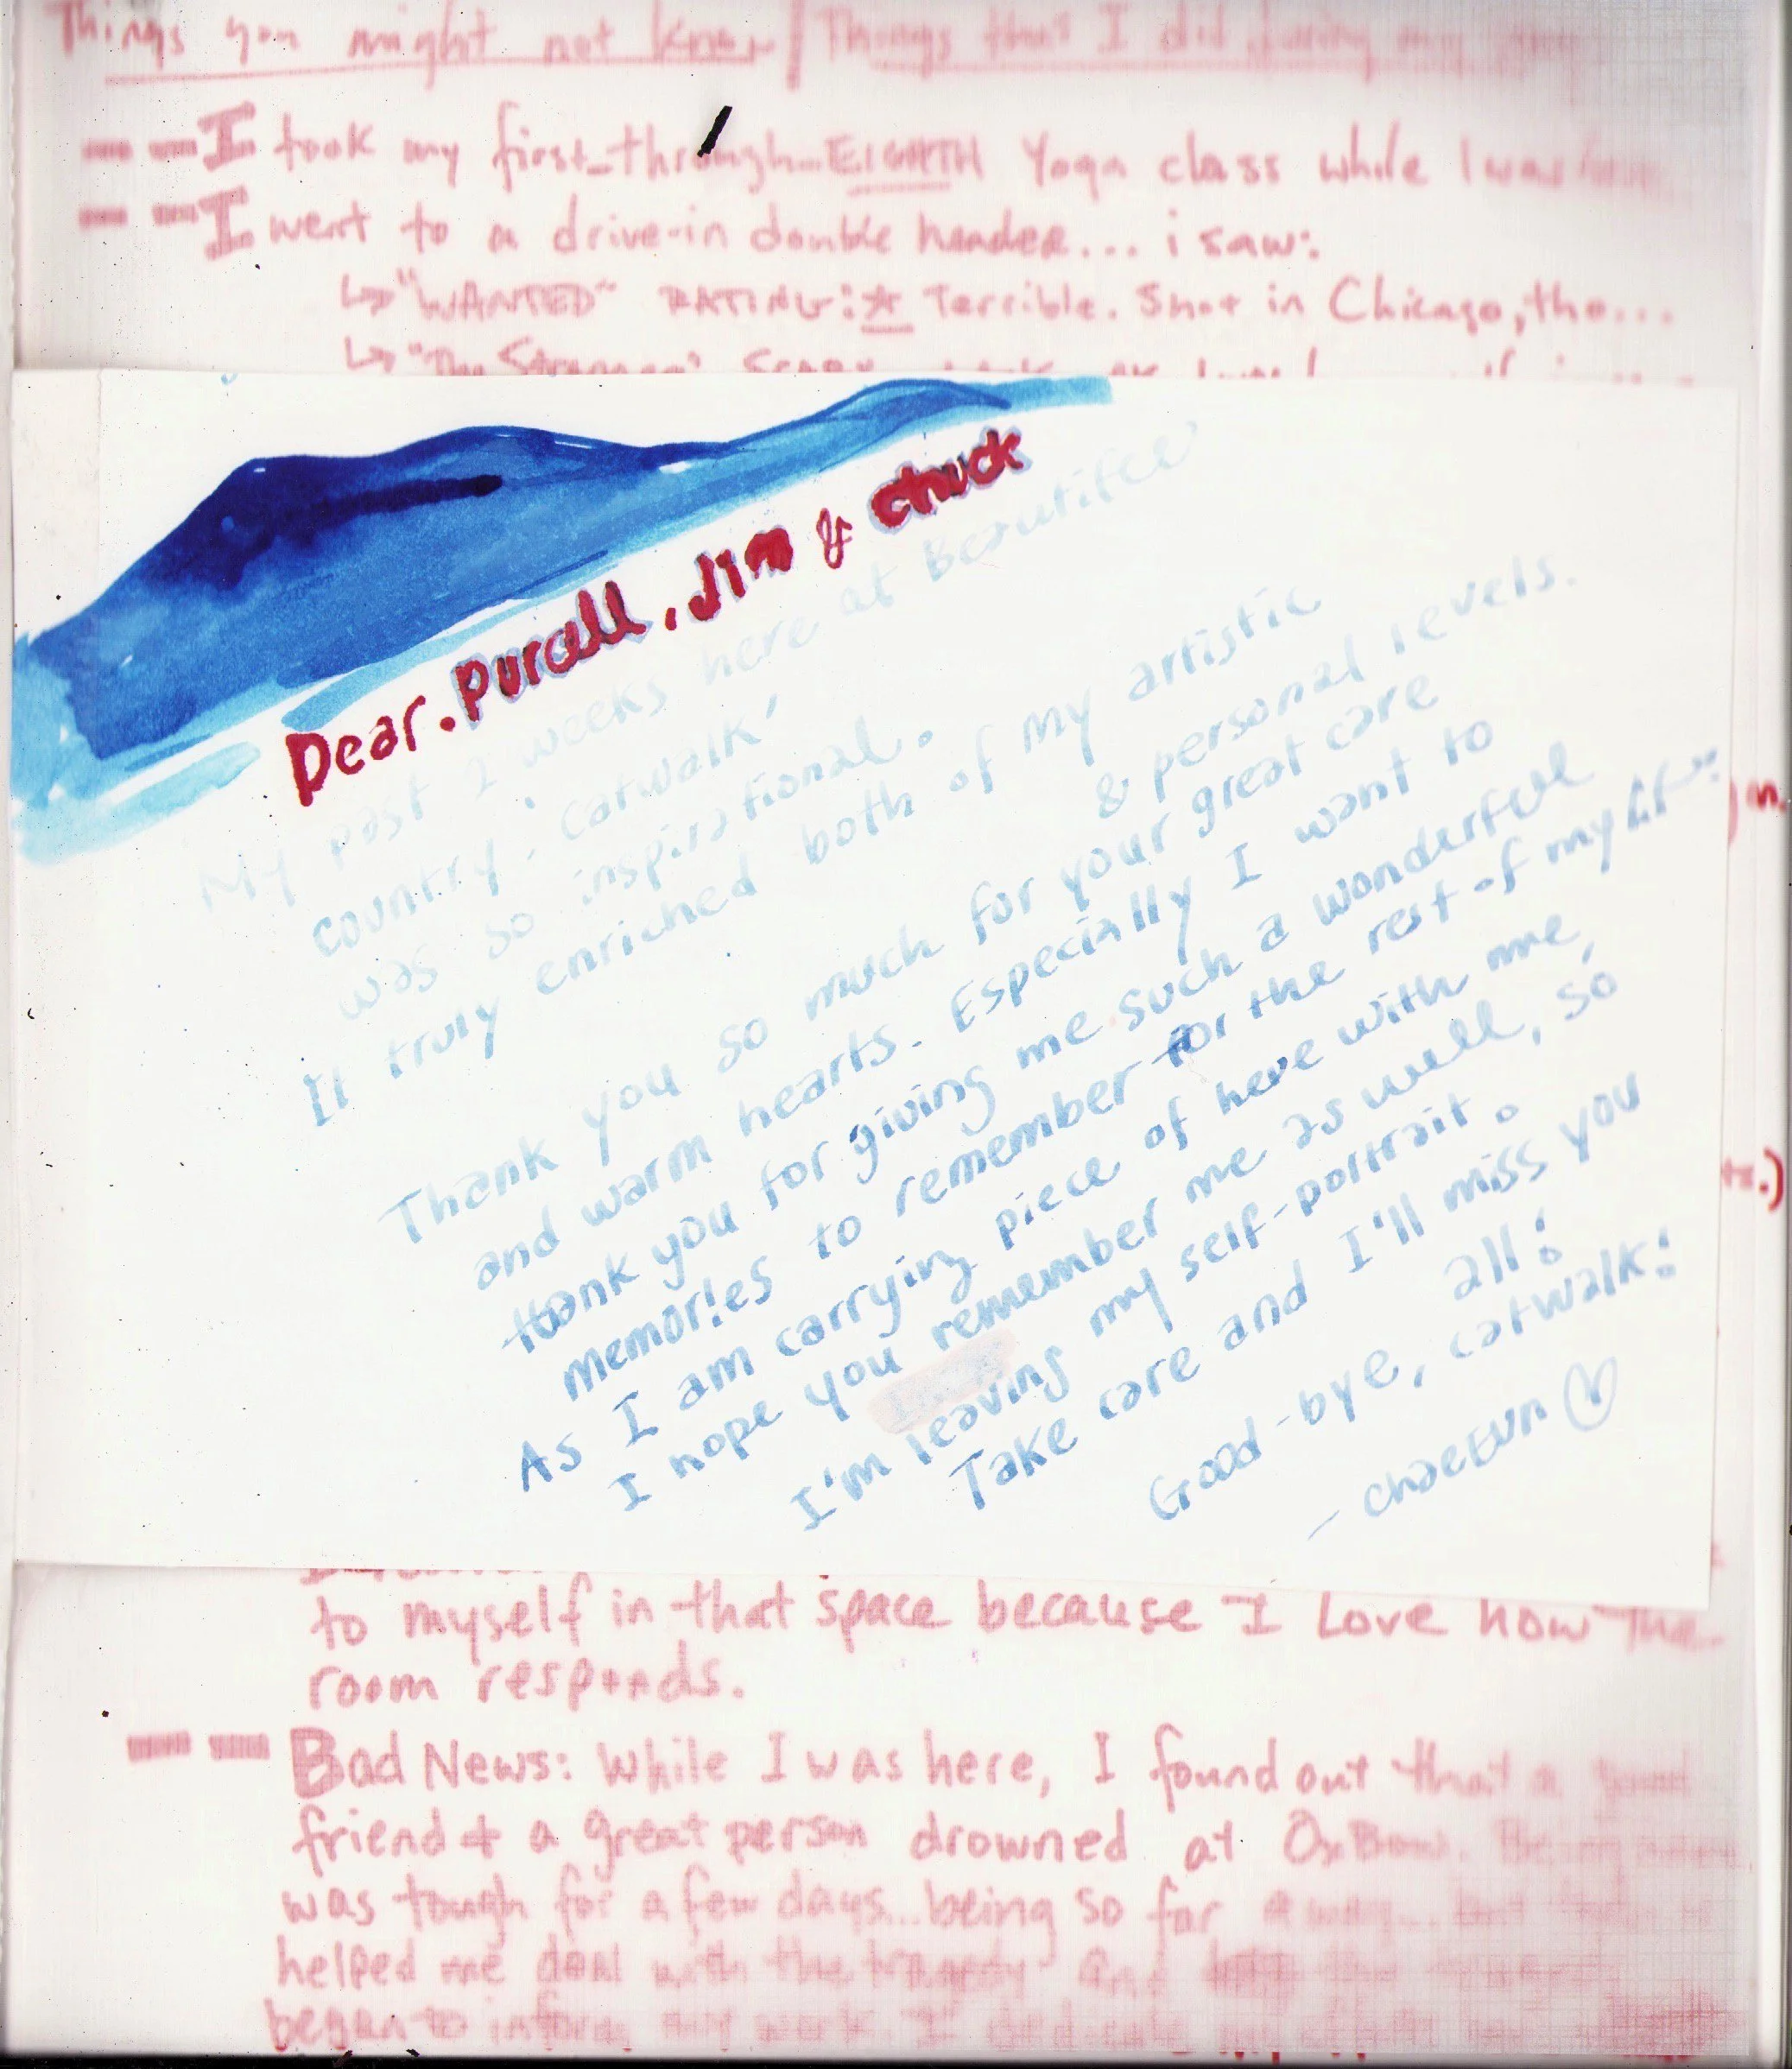 Things you might not know / Things that I did during my
-- I took my first-through-EIGHTH Yoga class while I was here
-- I went to a drive-in double header... i saw:
↳ "WANTED" RATING: ☆ Terrible. Shot in Chicago, tho...
↳ "The Strangers" Scary
Dear. Purcell, Jim & Chuck
My past 2 weeks here at Beautiful
country, 'catwalk'
was so inspirational.
It truly enriched both of my artistic
& personal levels.
Thank you so much for your great care
and warm hearts. Especially I want to
thank you for giving me such a wonderful
memories to remember for the rest of my life.
As I am carrying piece of here with me,
I hope you remember me as well, so
I'm leaving my self-portrait.
Take care and I'll miss you
all!
Good-bye, catwalk!
- chaeeun ♡
to myself in that space because I Love how the
room responds.
-- Bad News: While I was here, I found out that a good
friend + a great person drowned at OxBow. Being
was tough for a few days...being so far away...
helped me deal with the tragedy and
began to inform my work. I